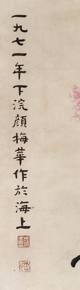 一九七一年下浣顔梅華作於海上